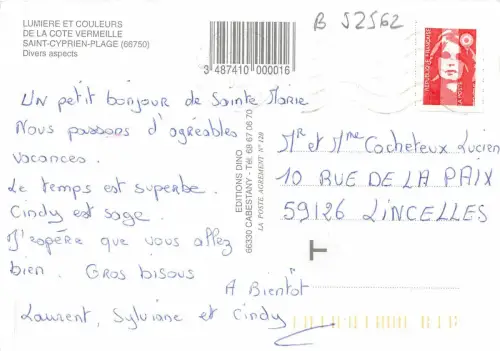 LUMIERE ET COULEURS
DE LA COTE VERMEILLE
SAINT-CYPRIEN-PLAGE (66750)
Divers aspects
3 487410 000016
B 52562
REPUBLIQUE FRANÇAISE
Un petit bonjour de Sainte Marie
Nous passons d'agréables
vacances.
Le temps est superbe.
Cindy est sage.
J'espère que vous allez
bien. Gros bisous
A Bientôt
Laurent, Sylviane et Cindy
EDITIONS DINO
66330 CABESTANY - Tél. 68 67 06 70
LA POSTE AGREMENT N° 120
Mr et Mme Cocheteux Lucien
10 RUE DE LA PAIX
59126 LINCELLES
T